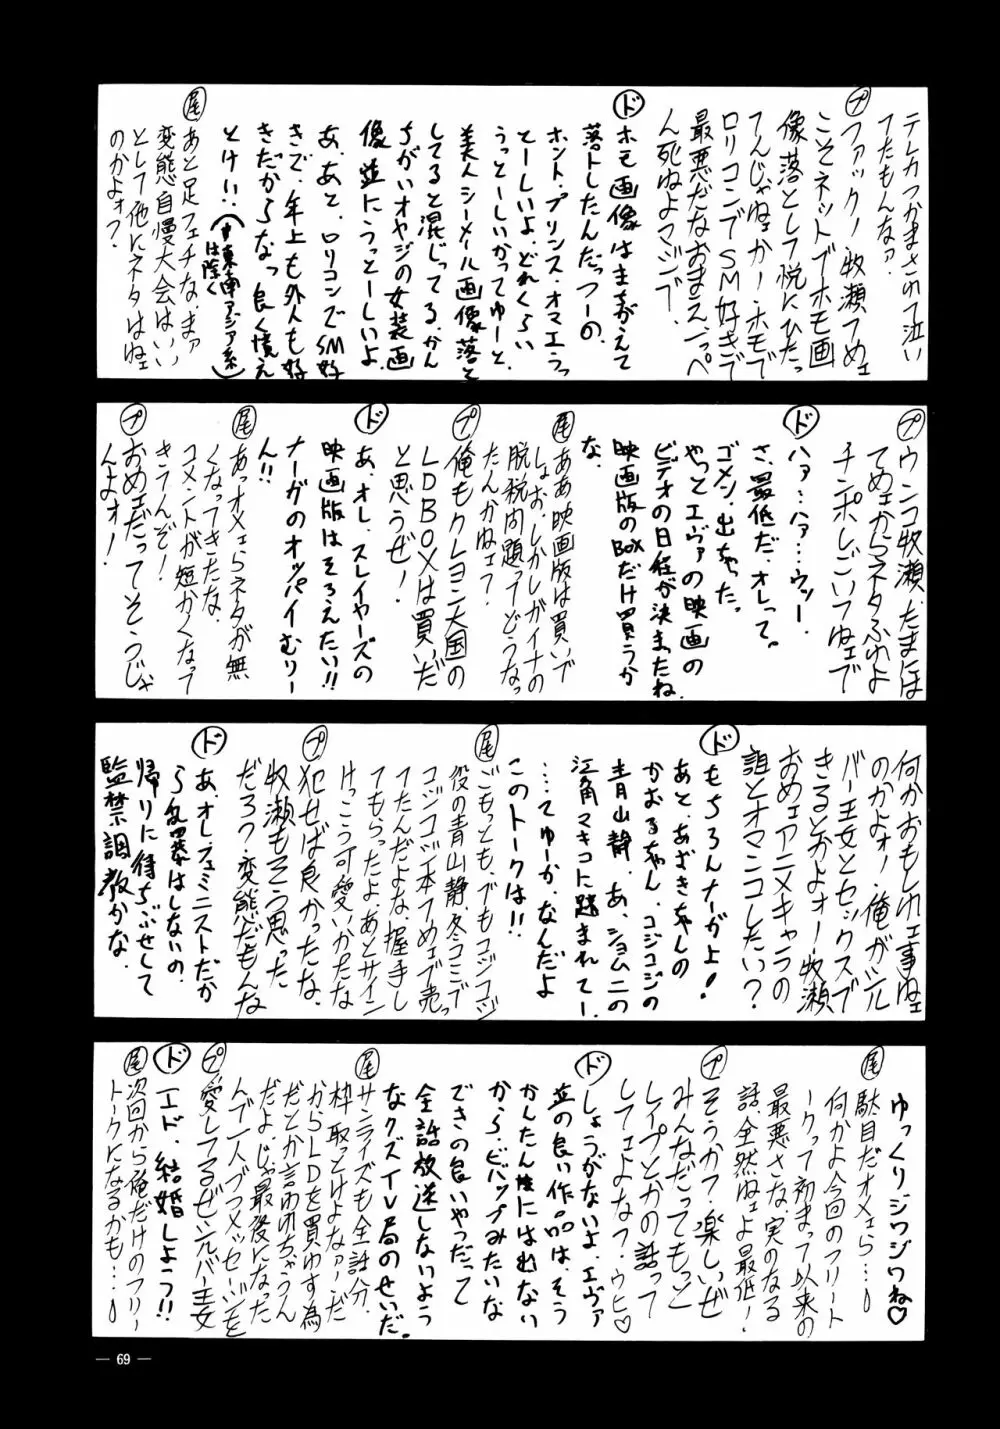 テレカつかまされて泣い
てたもんなァ。
㋫ファック！牧瀬てめェ
こそネットでホモ画
像落として悦にひたっ
てんじゃねェかー。ホモで
ロリコンでSM好きで
最悪だなおまえ。いっぺ
ん死ねよマジで。
㋣ホモ画像はまちがえて
落トしたんだっつーの。
ホント、プリンス、オマエうっ
とーしいよ。どれくらい
うっとーしいかってゆーと、
美人シーメール画像落と
してると混じってる、かん
ちがいオヤジの女装画
像並にうっとーしいよ。
あ、あと、ロリコンでSM好
きで、年上も外人も好
きだからなっ 良く憶え
とけい!!（中東南アジア系は除く）
尾 あと足フェチな。まァ
変態自慢大会はいい
として他にネタはねェ
のかよォ？
プ ウンコ牧瀬。たまには
てめェからネタふれよ
チンポしごいてねェで
ド ハァ…ハァ…ウッー
さ、最低だ、オレって。
ゴメン、出ちゃった。
やっとエヴァの映画の
ビデオの日程が決まったね。
映画版のBOXだけ買うか
な。
尾 ああ映画版は買いで
しょお。しかしガイナの
脱税問題ってどうなっ
たんかねェ？
プ 俺もクレヨン大国の
LDBOXは買いだ
と思うぜ！
ド あ、オレ、スレイヤーズの
映画版はそろえたい!!
ナーガのオッパイむりー
ん!!
尾 あっオメェらネタが無
くなってきたな。
コメントが短かくなって
きうんぞ！
プ おめェだってそうじゃ
んよォ！
何かおもしれェ事ねェ
のかよォ！俺がシル
バー王女とセックスで
きるとかよォー 牧瀬
おめェアニメキャラの
誰とオマンコしたい？
ド もちろんナーガよ！
あと、あずきちゃんの
かおるちゃん、コジコジの
青山静、あ、ショムニの
江角マキコに踏まれてー。
…てゆーか、なんだよ
このトークは!!
尾 ごもっとも、でもコジコジ
役の青山静、冬コミで
コジコジ本てめェで売っ
てたんだよな。握手し
てもらったよ。あとサイン
けっこう可愛いかったな
プ 犯せば良かったな、
牧瀬もそう思った
だろ？変態だもんな
ド あ、オレ、フェミニストだか
ら乱暴はしないの。
帰りに待ちぶせして
監禁調教かな。
ゆっくりジワジワね♡
尾 駄目だオメェら…
何かよ今回のフリート
ークって初まって以来の
最悪さな、実のなる
話、全然ねェよ最低！
プ そうかァ？楽しいぜ
みんなだってもっと
レイプとかの話って
してェよなァ？ウヒ♡
ド しょうがないよ。エヴァ
並の良い作品は、そう
かんたんには出ない
から。ビバップみたいな
できの良いやつだって
全話放送しないよう
なクズTV局のせいだ。
尾 サンライズも全話分、
枠取っとけよなァー。だ
からLDを買わす為
だとか言われちゃうん
だよ。じゃ最後になった
んで一人ブつメッセージを
プ 愛してるぜシルバー王女
ド エド、結婚しよう!!
尾 次回から俺だけのフリー
トークになるかも…
— 69 —